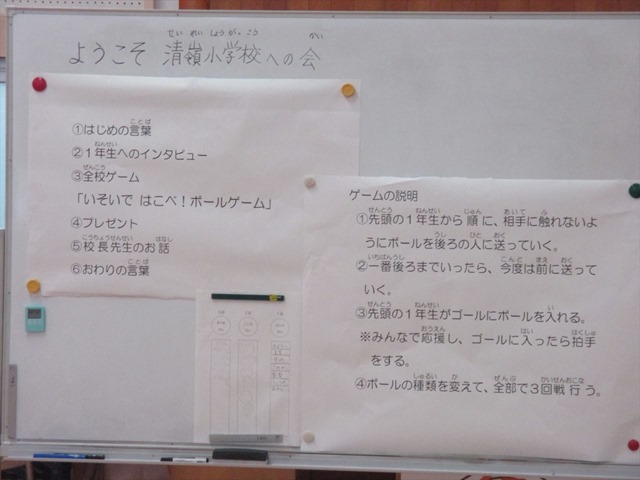 ようこそ 清嶺小学校への会
①はじめの言葉
②１年生へのインタビュー
③全校ゲーム
「いそいで はこべ！ボールゲーム」
④プレゼント
⑤校長先生のお話
⑥おわりの言葉
ゲームの説明
①先頭の１年生から順に、相手に触れないよ
うにボールを後ろの人に送っていく。
②一番後ろまでいったら、今度は前に送って
いく。
③先頭の１年生がゴールにボールを入れる。
※みんなで応援し、ゴールに入ったら拍手
をする。
④ボールの種類を変えて、全部で３回戦行う。